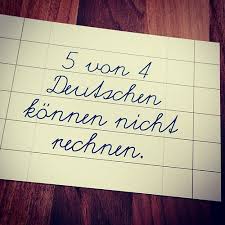 5 von 4
Deutschen
können nicht
rechnen.